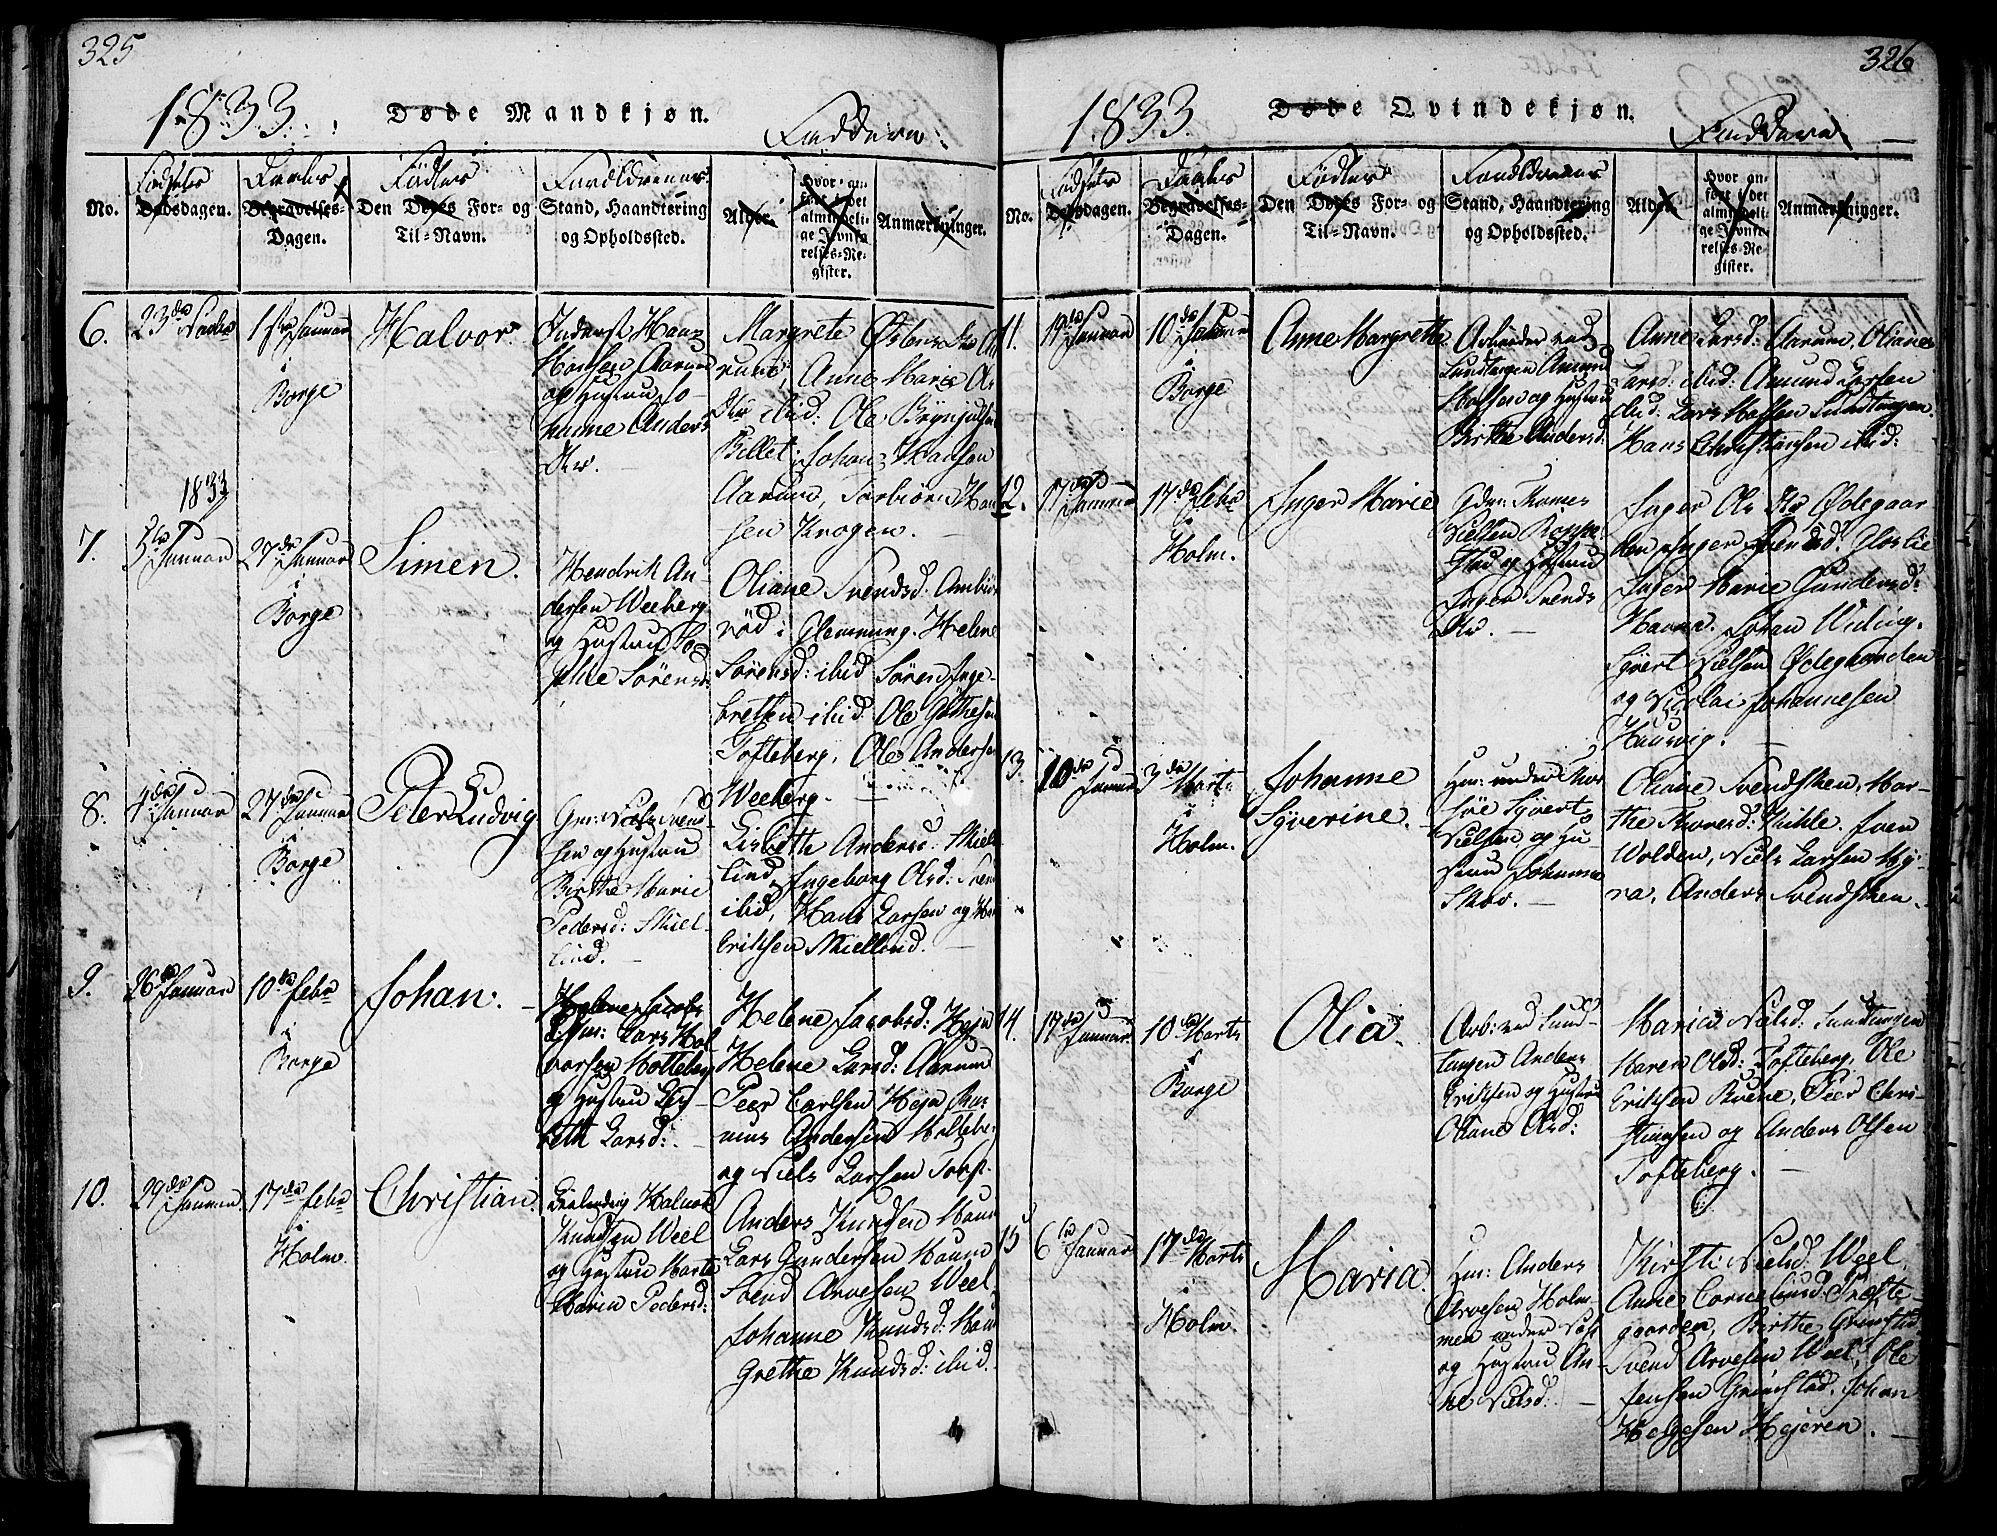 325
1833
Døde Mandkjøn.
Faddere
No.
Fødsels
Dødsdagen.
Daabs
Begravelses-
Dagen.
Fødtes
Den Dødes For- og
Til-Navn.
Forældrenes
Stand, Haandtering
og Opholdssted.
Alder.
Hvor an-
ført i det
almindeli-
ge Jevnfø-
relses-Re-
gister.
Anmærkninger.
6.
23de Novbr
1ste Januar
i
Borge
Halvor.
Inderst Hans
Madsen Aarum
og Hustru Jo-
hanne Anders
Dtr.
Margrete Olsens Dtr Aa
rum, Anne Marie
Dtr ibid: Ole Brynjulfsen
Billet, Johan Hansen
Aarum, Torbiörn Han
sen Krogen.
1833
7.
Januar
27de Januar
i
Borge
Simen.
Hendrik An-
dersen Weeberg
og Hustru So-
phie Sörensd:
Oliane Svendsd. Ambiö
röd i Glemming. Helene
Sörensd: ibid Sören Inge-
bretsen ibid. Ole Göthesen
Tofteberg, Ole Andersen
Weeberg.
8.
4de Januar
27de Januar
i
Borge
Peter Ludvig
Gm: Svend-
sen og Hustru
Birthe Marie
Pedersd: Skiel-
lind.
Lisbeth Andersd. Skiel
lind, Ingeborg Olsd:
ibid, Hans Larsen og
Eriksen Skiellind.
9.
26de Januar
10de Febr
i
Borge
Johan.
Helene Jacobs
Hm: Lars Hal
vorsen Holteberg
og Hustru Lis
beth Larsd:
Helene Jacobsd: Heja
Helene Larsd: Aarum
Peer Carlsen Heja Ras
mus Andersen Holtebe
og Niels Larsen Torp.
10.
29de Januar
17de Febr
i
Holm.
Christian.
Halvor
Knudsen Weel
og Hustru Marte
Maria Pedersd:
Anders Knudsen Haun
Lars Gundersen Haune
Svend Arvesen Weel,
Johanne Knudsd. Haun
Grethe Knudsd: ibid.
326
1833
Døde Qvindekjøn.
Faddere
No.
Fødsels
Dødsdagen.
Daabs
Begravelses-
Dagen.
Fødtes
Den Dødes For- og
Til-Navn.
Forældrenes
Stand, Haandtering
og Opholdssted.
Alder.
Hvor an-
ført i det
almindeli-
ge Jevnfø-
relses-Re-
gister.
Anmærkninger.
11.
Januar
10de Februar
i
Borge
Anne Margrethe
Arbeider ved
Sundtangen Amund
Madsen og Hustru
Birthe Andersd.
Anne Larsd: Aarum, Oliane
Larsd: ibid: Amund Larsen
ibid: Lars Madsen Sundtangen.
Hans Christiansen ibid:
12.
17de Januar
17de Febr
i
Holm.
Inger Marie
Gdm: Thomas
Nielsen Roppe-
stad og Hustru
Inger Svends
Dtr.
Inger Ols Dtr Ödegaar
den, Inger Svendsd. Gloslie
Inger Marie Gundersd:
Hauna. Johan Viding.
Syvert Nielsen Ödegaarden
og Nicolai Johannesen
Hausvig.
13.
10de Januar
3de Marts
i
Holm.
Johanne
Syverine.
Hm: under Thor
söe Syvert
Nielsen og Hu-
stru Johanne
Skov.
Oliane Svendsken, Mar-
the Thoresd: Kihle. Iver
Volden, Niels Larsen My-
ra, Anders Svendsken.
14.
17de Januar
10de Marts
i
Borge
Olia.
Arb: ved Sund-
tangen Anders
Eriksen og Hustru
Oliane Olsd:
Maria Nielsd: Sundtangen
Maren Olsd: Tofteberg, Ole
Eriksen Kvene, Peer Chri-
stiansen og Anders Olsen
Tofteberg.
15
6te Januar
17de Marts
i
Holm.
Maria.
Hm: Anders
Arvesen Holm-
men under
og Hustru An-
ne Nielsd:
Kirsti Nielsd: Weel,
Anne Corneliusd: Præste-
gaarden, Berthe Grimstad
Svend Arvesen Weel, Ole
Jensen Grimstad, Johan
Helgesen Hejeren.